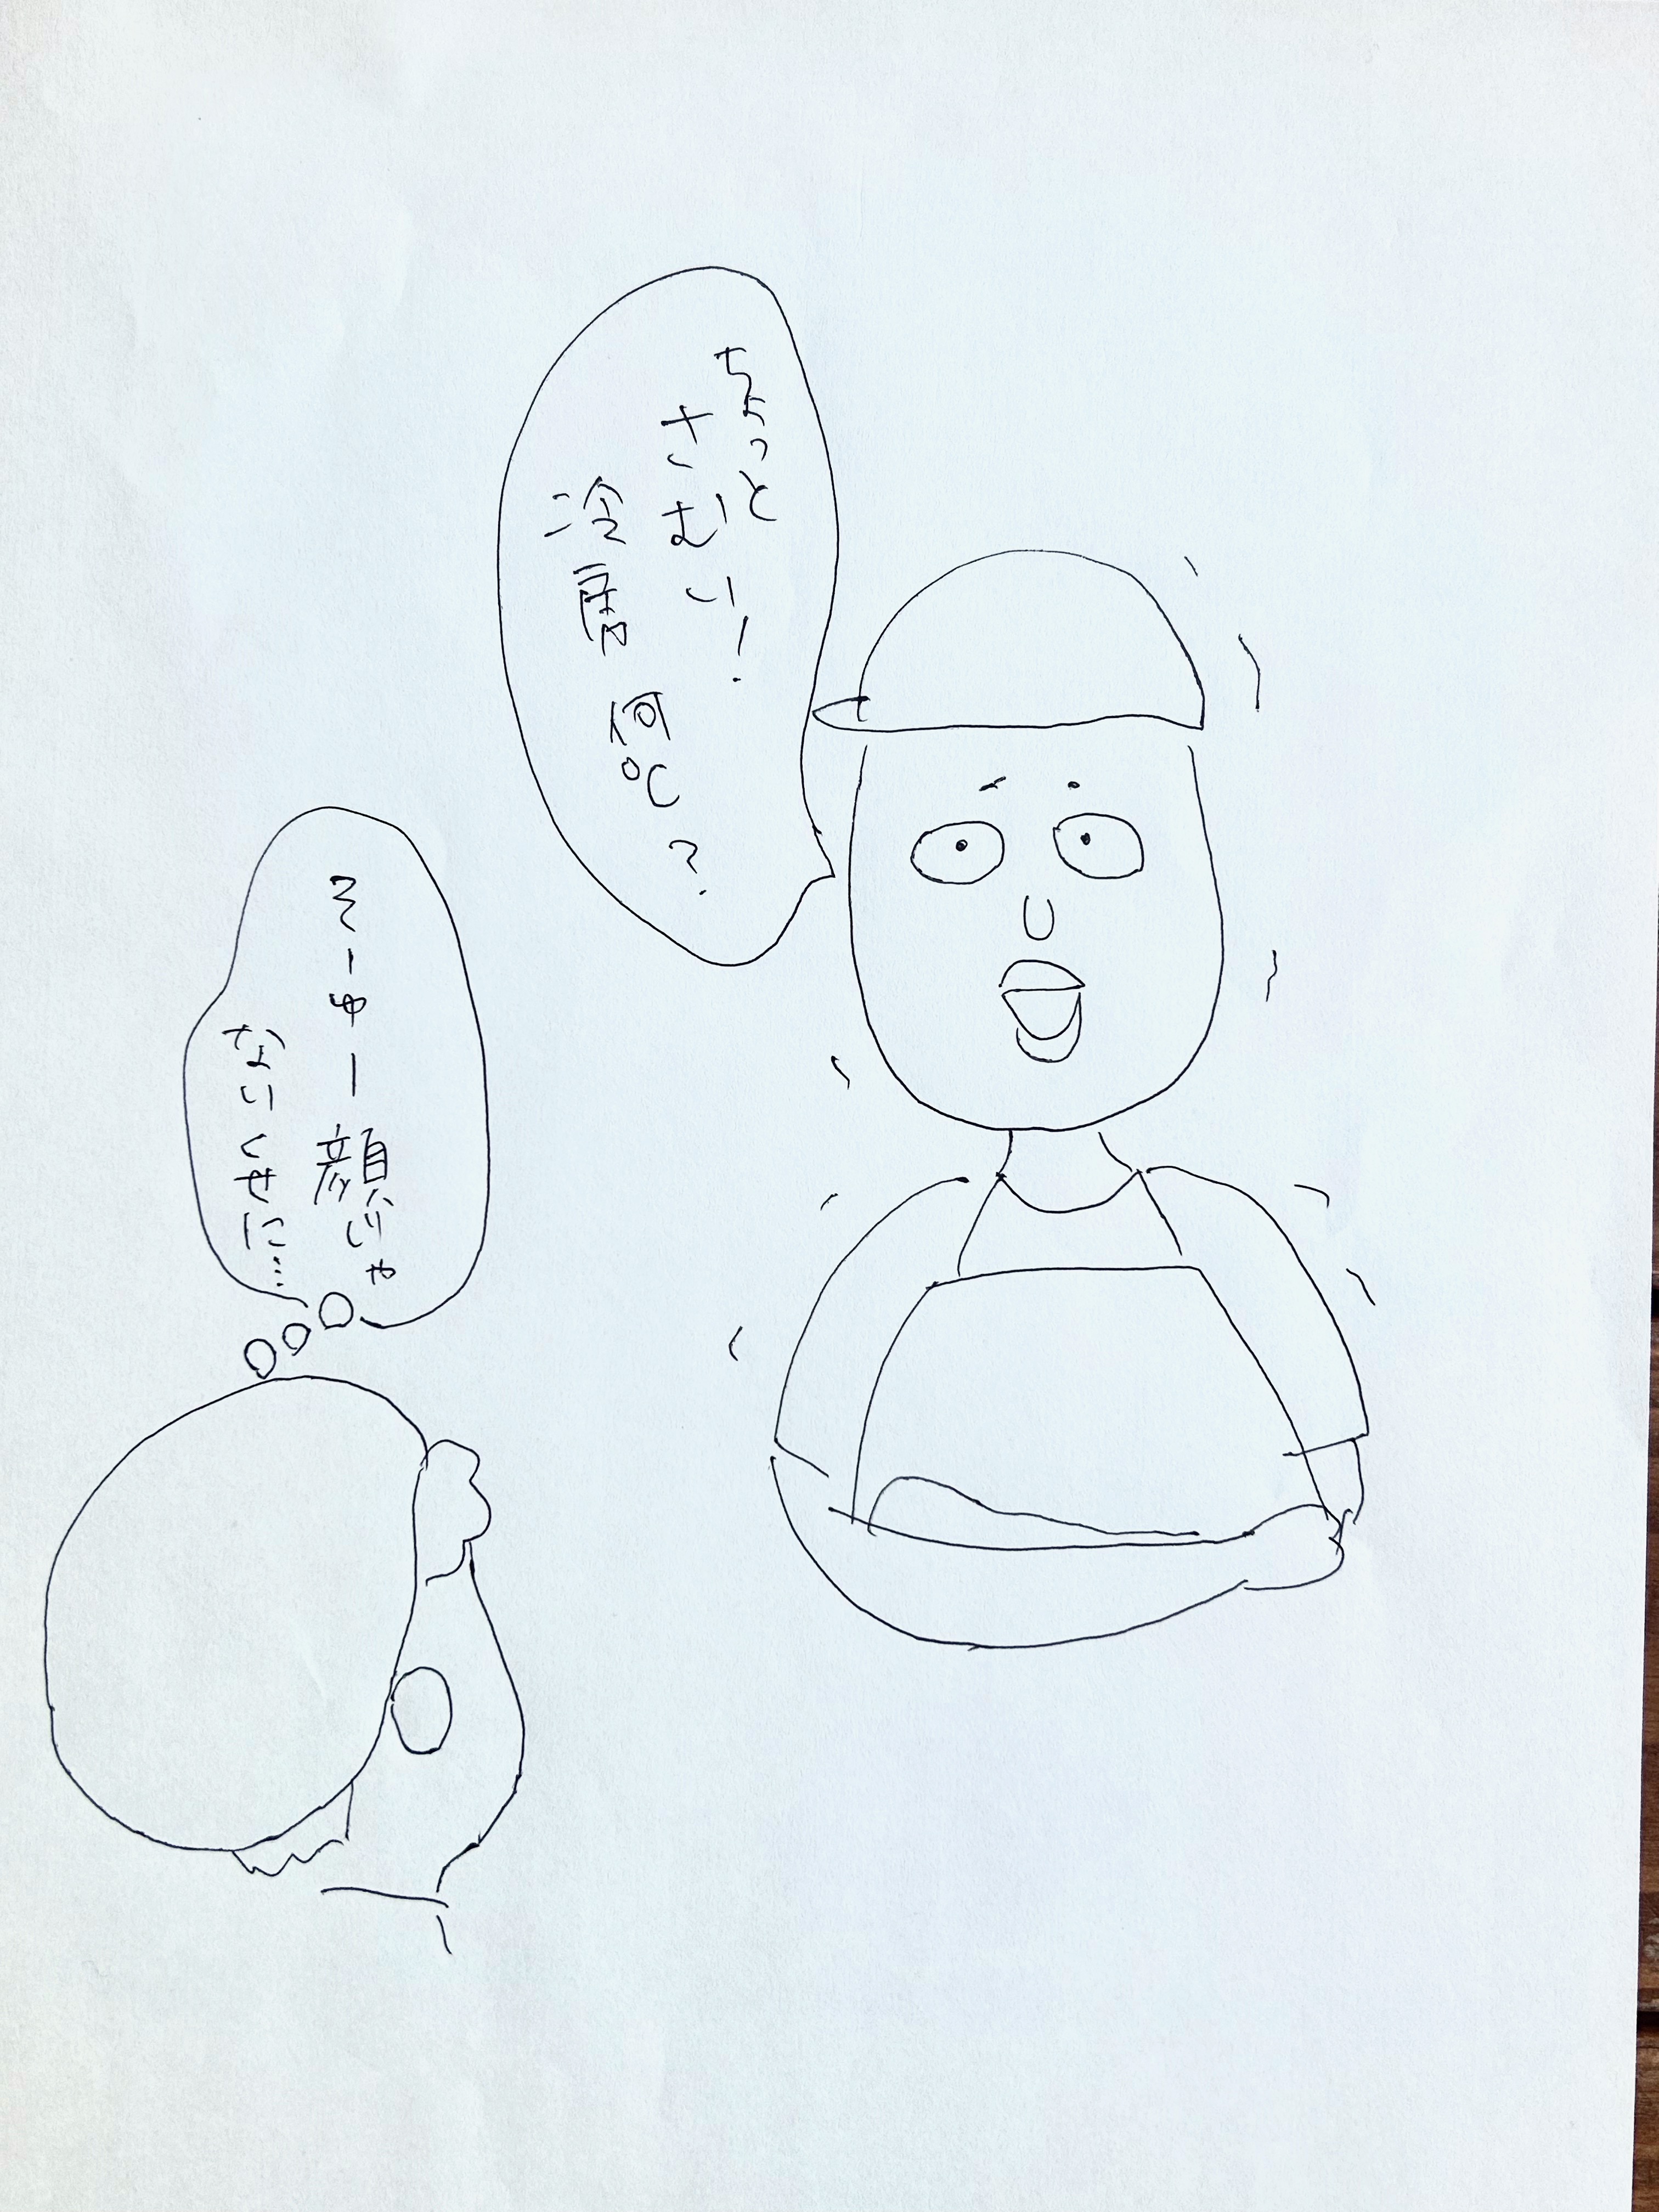 ちょっと
さむい!
冷房 何℃?
そーゆー顔じゃ
ないくせに…